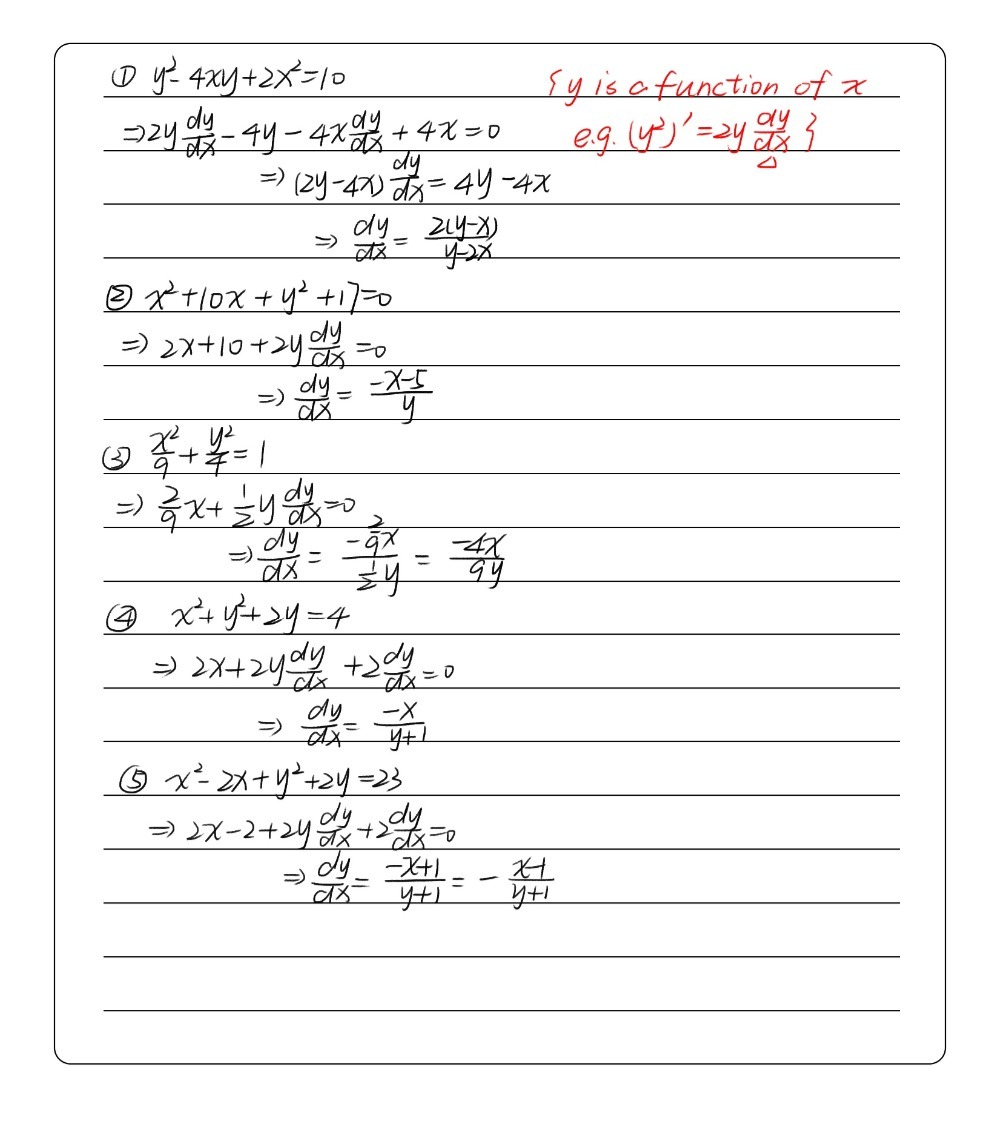 ① y²-4xy+2x²=10 {y is a function of x
⇒2y dy/dx - 4y - 4x dy/dx + 4x=0 e.g. (y²)'=2y dy/dx }
△
⇒ (2y-4x) dy/dx = 4y-4x
⇒ dy/dx = 2(y-x)/(y-2x)
② x²+10x+y²+17=0
⇒ 2x+10+2y dy/dx =0
⇒ dy/dx = (-x-5)/y
③ x²/9 + y²/4 = 1
⇒ 2/9 x + 1/2 y dy/dx =0
⇒ dy/dx = (-2/9 x)/(1/2 y) = -4x/9y
④ x²+y²+2y=4
⇒ 2x+2y dy/dx +2 dy/dx =0
⇒ dy/dx = -x/(y+1)
⑤ x²-2x+y²+2y=23
⇒ 2x-2+2y dy/dx +2 dy/dx =0
⇒ dy/dx = (-x+1)/(y+1) = - (x-1)/(y+1)